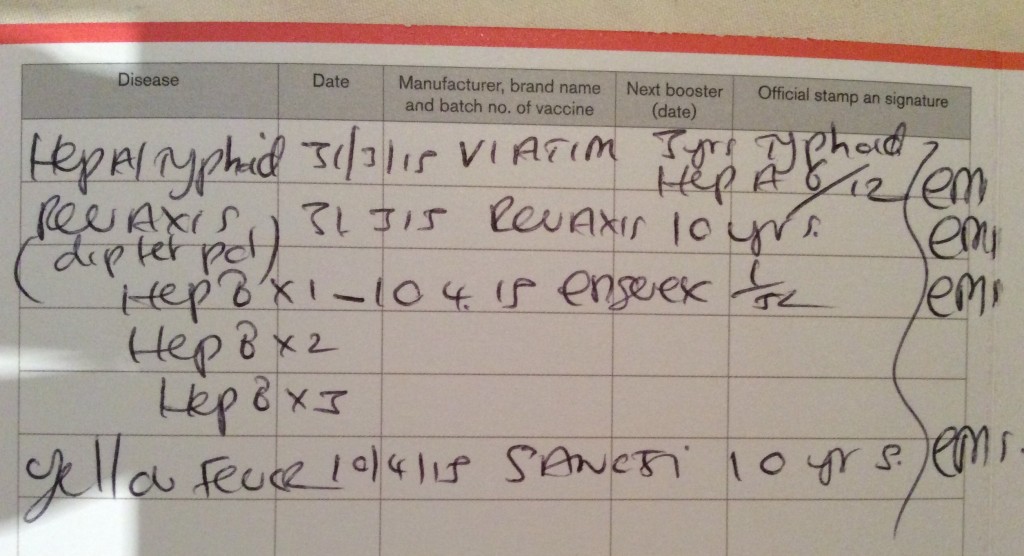 Disease Date Manufacturer, brand name and batch no. of vaccine Next booster (date) Official stamp an signature
Hep A/Typhoid 31/3/15 VIATIM 3yrs Typhoid
Hep A 6/12 em
RevAxis 31 3 15 RevAxis 10 yrs. em
(dip tet pol)
Hep B x 1 - 10 4. 15 engerex 1/52 em
Hep B x 2
Hep B x 3
yellow Fever 10/4/15 SANOFI 10 yrs. em